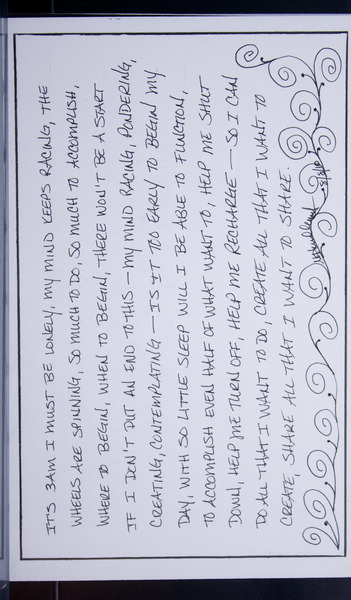 IT'S 3AM I MUST BE LONELY, MY MIND KEEPS RACING, THE
WHEELS ARE SPINNING, SO MUCH TO DO, SO MUCH TO ACCOMPLISH,
WHERE TO BEGIN, WHEN TO BEGIN, THERE WON'T BE A START
IF I DON'T PUT AN END TO THIS — MY MIND RACING, PONDERING,
CREATING, CONTEMPLATING — IS IT TOO EARLY TO BEGIN MY
DAY, WITH SO LITTLE SLEEP WILL I BE ABLE TO FUNCTION,
TO ACCOMPLISH EVEN HALF OF WHAT WANT TO, HELP ME SHUT
DOWN, HELP ME TURN OFF, HELP ME RECHARGE — SO I CAN
DO ALL THAT I WANT TO DO, CREATE ALL THAT I WANT TO
CREATE, SHARE ALL THAT I WANT TO SHARE.